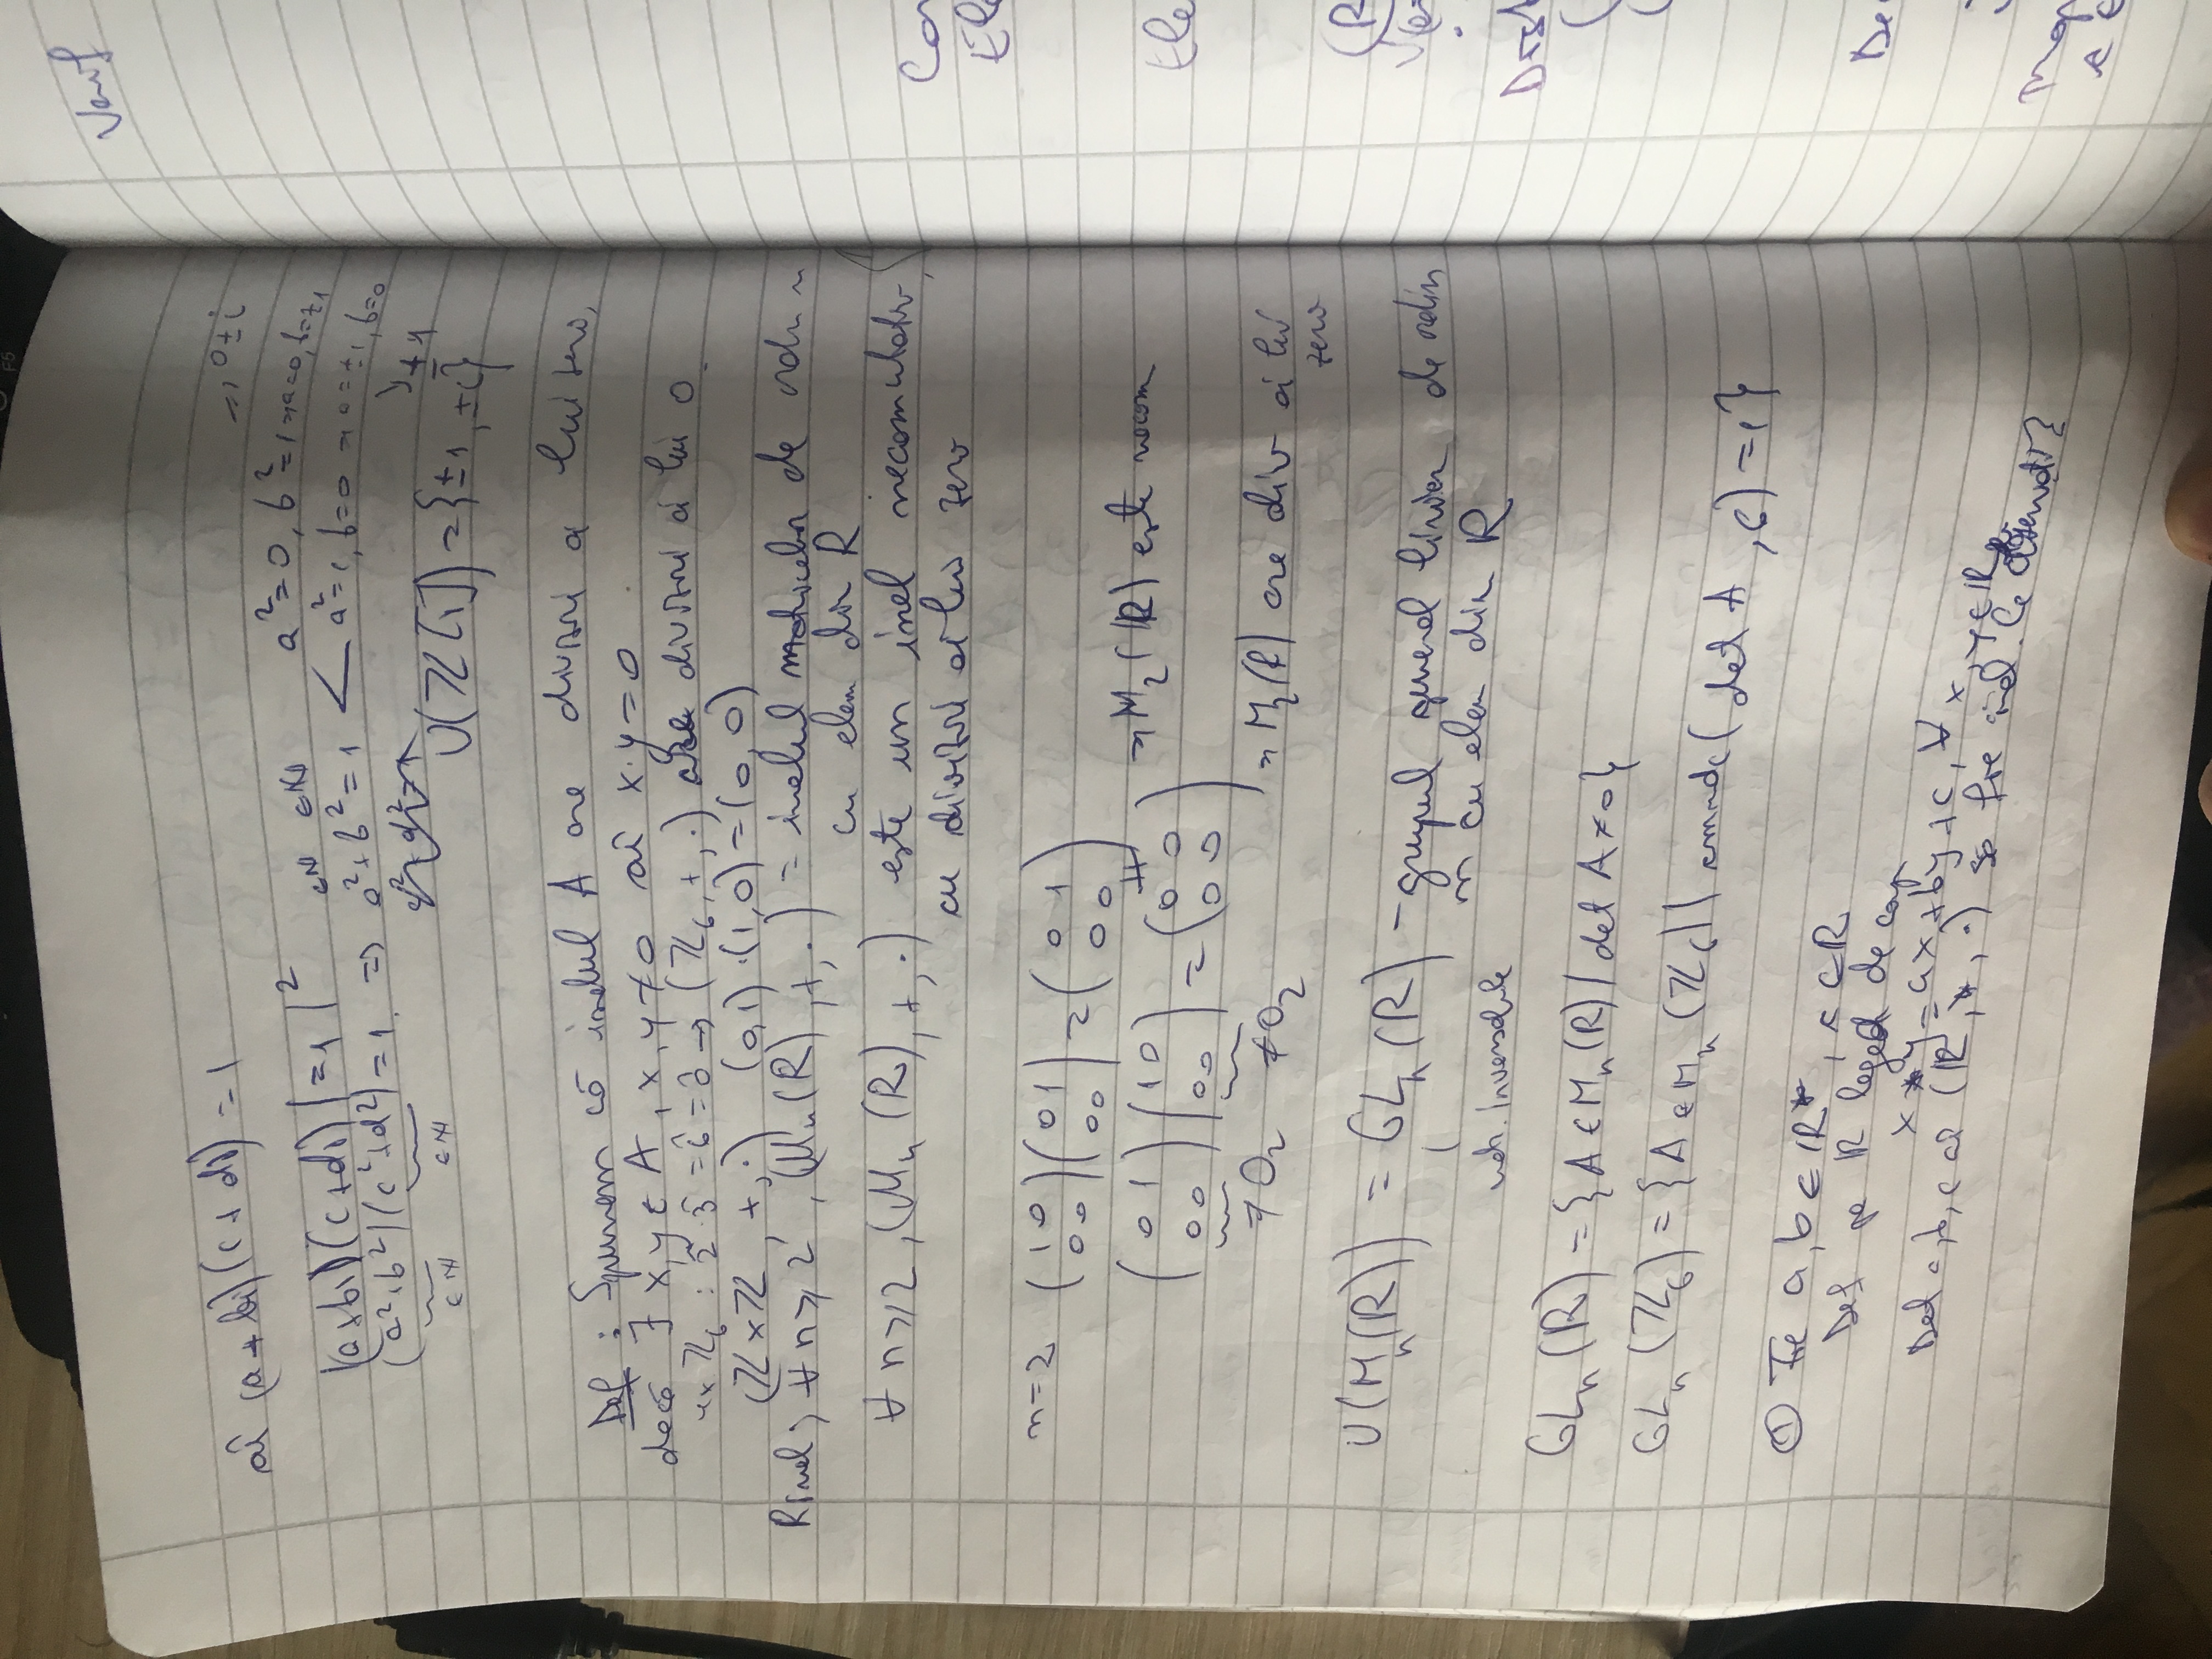 aî (a+bi)(c+di) = 1
=> 0 ± i
|(a+bi)(c+di)| = 1 |²
a² = 0, b² = 1 => a = 0, b = ±1
(a²+b²)(c²+d²) = 1 => a²+b² = 1 < a² = 1, b = 0 => a = ±1, b = 0
∈N ∈N
∈N ∈N
± 1
U(Z[i]) = {±1, ±i}
Def: Spunem că inelul A are divizori a lui zero,
dacă ∃ x, y ∈ A, x, y ≠ 0 aî x·y = 0
ex Z₆: 2·3 = 6 = 0 → (Z₆, +, ·) are divizori ai lui 0.
(Z×Z, +, ·) (0,1)·(1,0) = (0,0)
R inel, ∀ n ≥ 2, (Mₙ(R), +, ·) = inelul matricelor de ordin n
cu elem din R
∀ n ≥ 2, (Mₙ(R), +, ·) este un inel necomutativ,
cu divizori ai lui zero
n=2 (1 0 / 0 0)(0 1 / 0 0) = (0 1 / 0 0)
≠ => M₂(R) este necom
(0 1 / 0 0)(1 0 / 0 0) = (0 0 / 0 0)
≠ O₂ ≠ O₂ => M₂(R) are div ai lui zero
U(Mₙ(R)) = GLₙ(R) - grupul general liniar de ordin
n cu elem din R
inversabile
GLₙ(R) = {A ∈ Mₙ(R) | det A ≠ 0}
GLₙ(Z₆) = {A ∈ Mₙ(Z₆) | cmmdc(det A, 6) = 1}
① Fie a, b ∈ R*, c ∈ R
Def pe R legea de comp
x * y = ax + by + c, ∀ x, y ∈ R
Det a, b, c aî (R, *, ·) să fie inel.